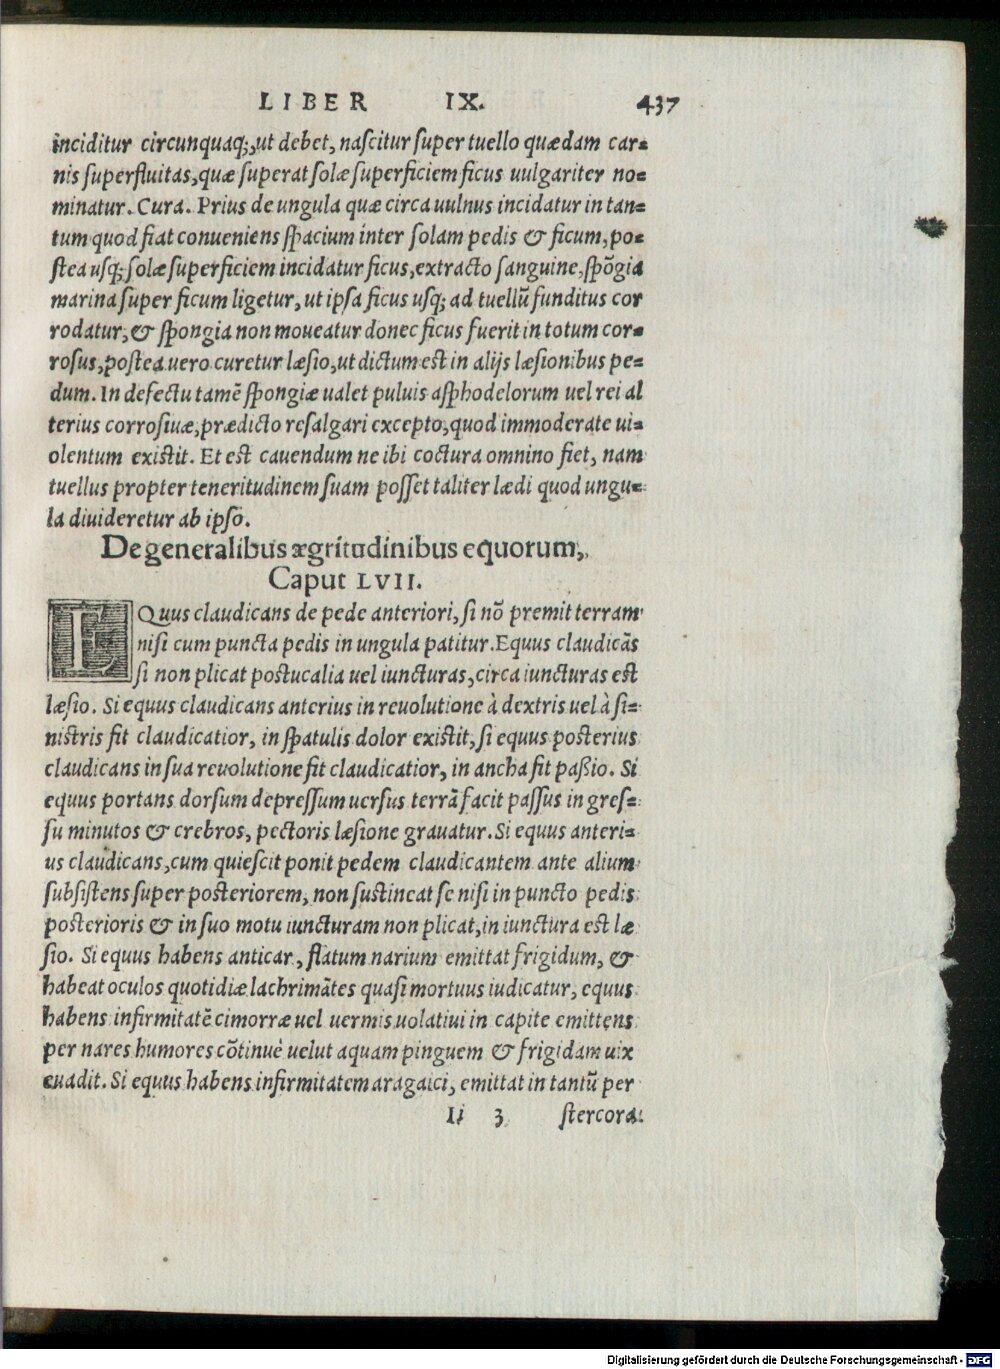 LIBER IX. 437
inciditur circunquaq;, ut debet, nascitur super tuello quædam car=
nis superfluitas, quæ superat solæ superficiem ficus uulgariter no=
minatur. Cura. Prius de ungula quæ circa uulnus incidatur in tan=
tum quod fiat conueniens spacium inter solam pedis & ficum, po=
stea usq; solæ superficiem incidatur ficus, extracto sanguine, spõgia
marina super ficum ligetur, ut ipsa ficus usq; ad tuellũ funditus cor
rodatur, & spongia non moueatur donec ficus fuerit in totum cor=
rosus, postea uero curetur læsio, ut dictum est in alijs læsionibus pe=
dum. In defectu tamẽ spongiæ ualet puluis asphodelorum uel rei al
terius corrosiuæ, prædicto resalgari excepto, quod immoderate ui=
olentum existit. Et est cauendum ne ibi coctura omnino fiet, nam
tuellus propter teneritudinem suam posset taliter lædi quod ungu=
la diuideretur ab ipso.
De generalibus ægritudinibus equorum,
Caput LVII.
EQuus claudicans de pede anteriori, si nõ premit terram
nisi cum puncta pedis in ungula patitur. Equus claudicãs
si non plicat postucalia uel iuncturas, circa iuncturas est
læsio. Si equus claudicans anterius in reuolutione à dextris uel à si=
nistris fit claudicatior, in spatulis dolor existit, si equus posterius
claudicans in sua reuolutione fit claudicatior, in ancha fit paßio. Si
equus portans dorsum depressum uersus terrã facit passus in gres=
su minutos & crebros, pectoris læsione grauatur. Si equus anteri=
us claudicans, cum quiescit ponit pedem claudicantem ante alium
subsistens super posteriorem, non sustineat se nisi in puncto pedis
posterioris & in suo motu iuncturam non plicat, in iunctura est læ
sio. Si equus habens anticar, flatum narium emittat frigidum, &
habeat oculos quotidiæ lachrimãtes quasi mortuus iudicatur, equus
habens infirmitatẽ cimorræ uel uermis uolatiui in capite emittens
per nares humores cõtinuè uelut aquam pinguem & frigidam uix
euadit. Si equus habens infirmitatem aragaici, emittat in tantũ per
Ii 3 stercora
Digitalisierung gefördert durch die Deutsche Forschungsgemeinschaft - DFG